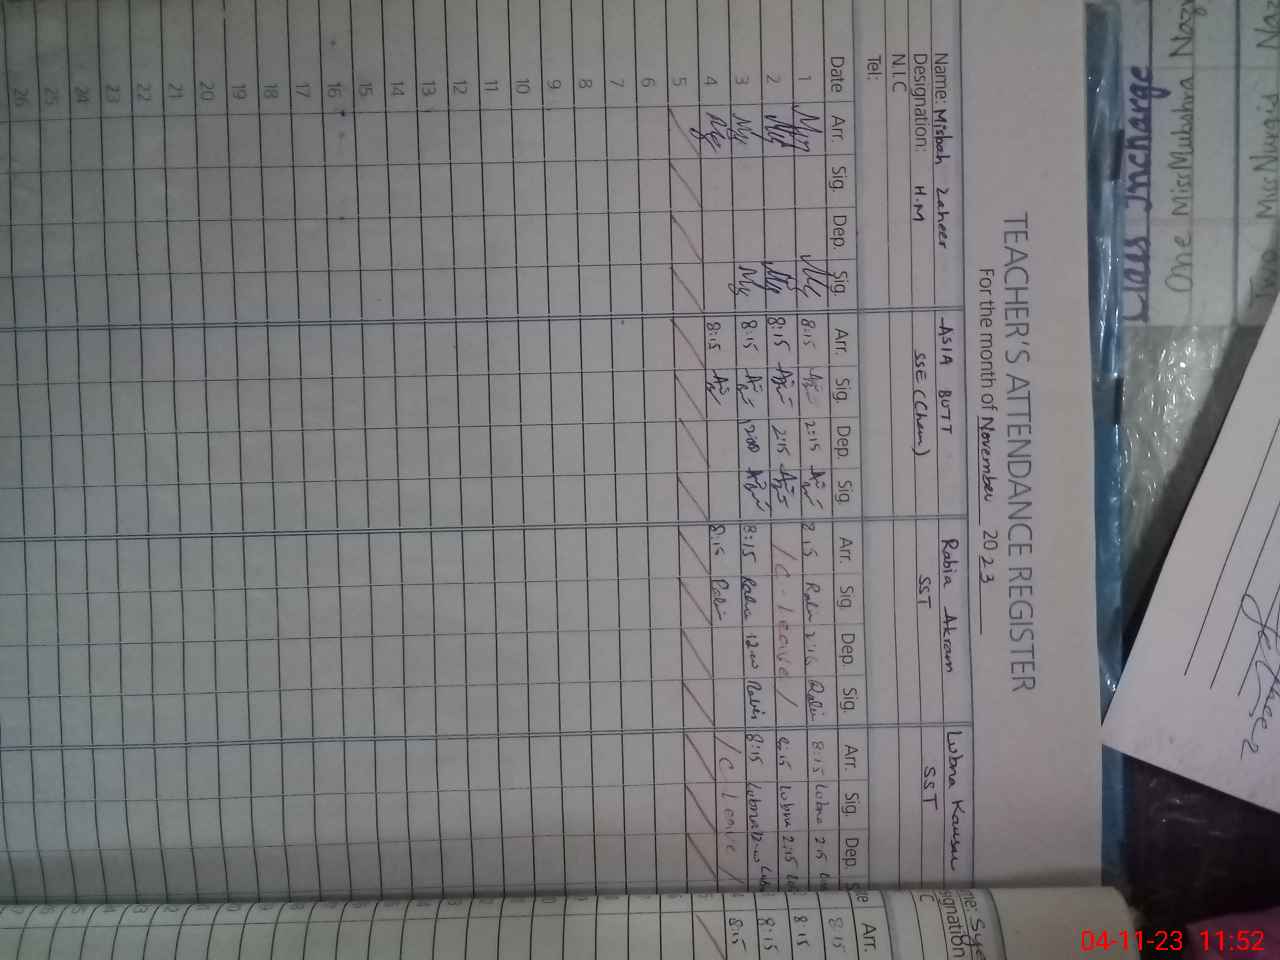 TEACHER'S ATTENDANCE REGISTER
For the month of November 2023
Name: Misbah Zaheer ASIA BUTT Rabia Akram Lubna Kausar
Designation: H.M SSE (Chem) SST SST
N.I.C
Tel:
Date Arr. Sig. Dep. Sig. Arr. Sig. Dep. Sig. Arr. Sig. Dep. Sig. Arr. Sig. Dep. S
1 8:15 2:15 8:15 Rabia 2:15 Rabia 8:15 Lubna 2:15
2 8:15 2:15 / C - Leave / 8:15 Lubna 2:15
3 8:15 12:00 8:15 Rabia 12:00 Rabia 8:15 Lubna 12:00
4 8:15 8:15 Rabia / C Leave /
5
6
7
8
9
10
11
12
13
14
15
16
17
18
19
20
21
22
23
24
25
26
me: Sye
signation
C
Arr.
8:15
8:15
8:15
8:15
Class Incharge
One Miss Mubashra Naz
04-11-23 11:52